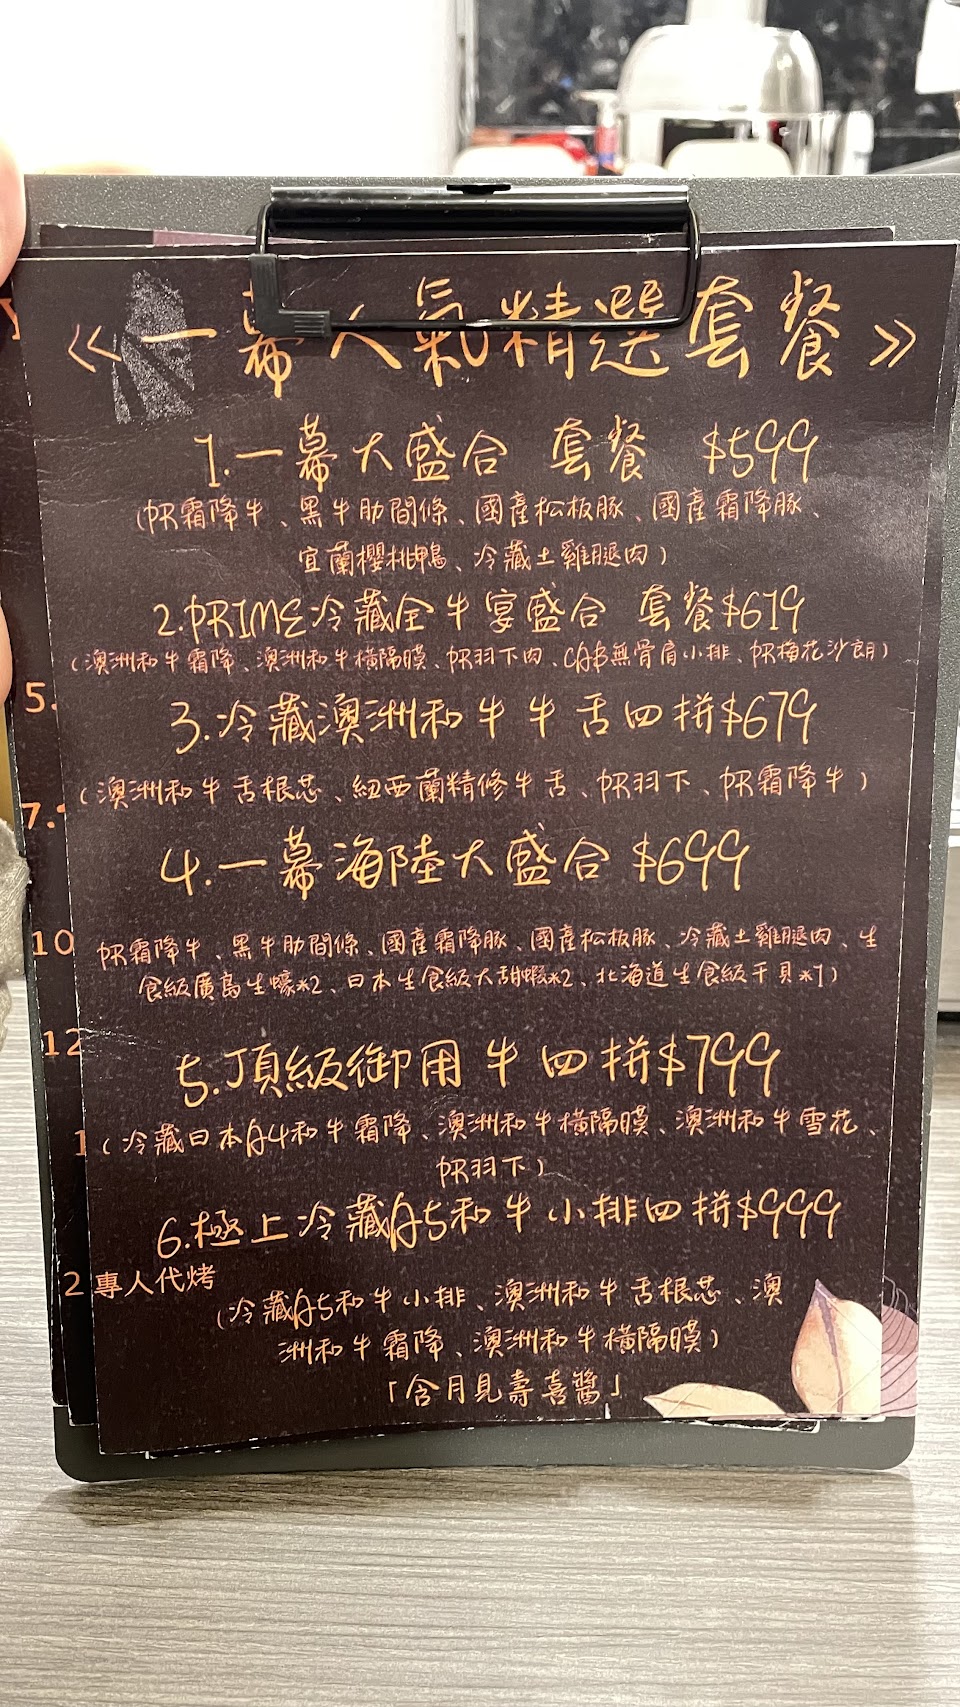 《一幕人氣精選套餐》
1.一幕大盛合 套餐 $599
(PR霜降牛、黑牛肋間條、國產松板豚、國產霜降豚、
宜蘭櫻桃鴨、冷藏土雞腿肉)
2.PRIME冷藏全牛宴盛合 套餐$619
(澳洲和牛霜降、澳洲和牛橫隔膜、PR羽下肉、CAB無骨肩小排、PR梅花沙朗)
3.冷藏澳洲和牛牛舌四拼$679
(澳洲和牛舌根芯、紐西蘭精修牛舌、PR羽下、PR霜降牛)
4.一幕海陸大盛合 $699
PR霜降牛、黑牛肋間條、國產霜降豚、國產松板豚、冷藏土雞腿肉、生
食級廣島生蠔*2、日本生食級大甜蝦*2、北海道生食級干貝*1)
5.頂級御用牛四拼$799
(冷藏日本A4和牛霜降、澳洲和牛橫隔膜、澳洲和牛雪花、
PR羽下)
6.極上冷藏A5和牛小排四拼$999
專人代烤
(冷藏A5和牛小排、澳洲和牛舌根芯、澳
洲和牛霜降、澳洲和牛橫隔膜)
「含月見壽喜醬」
5.
7.
10
12
1
2